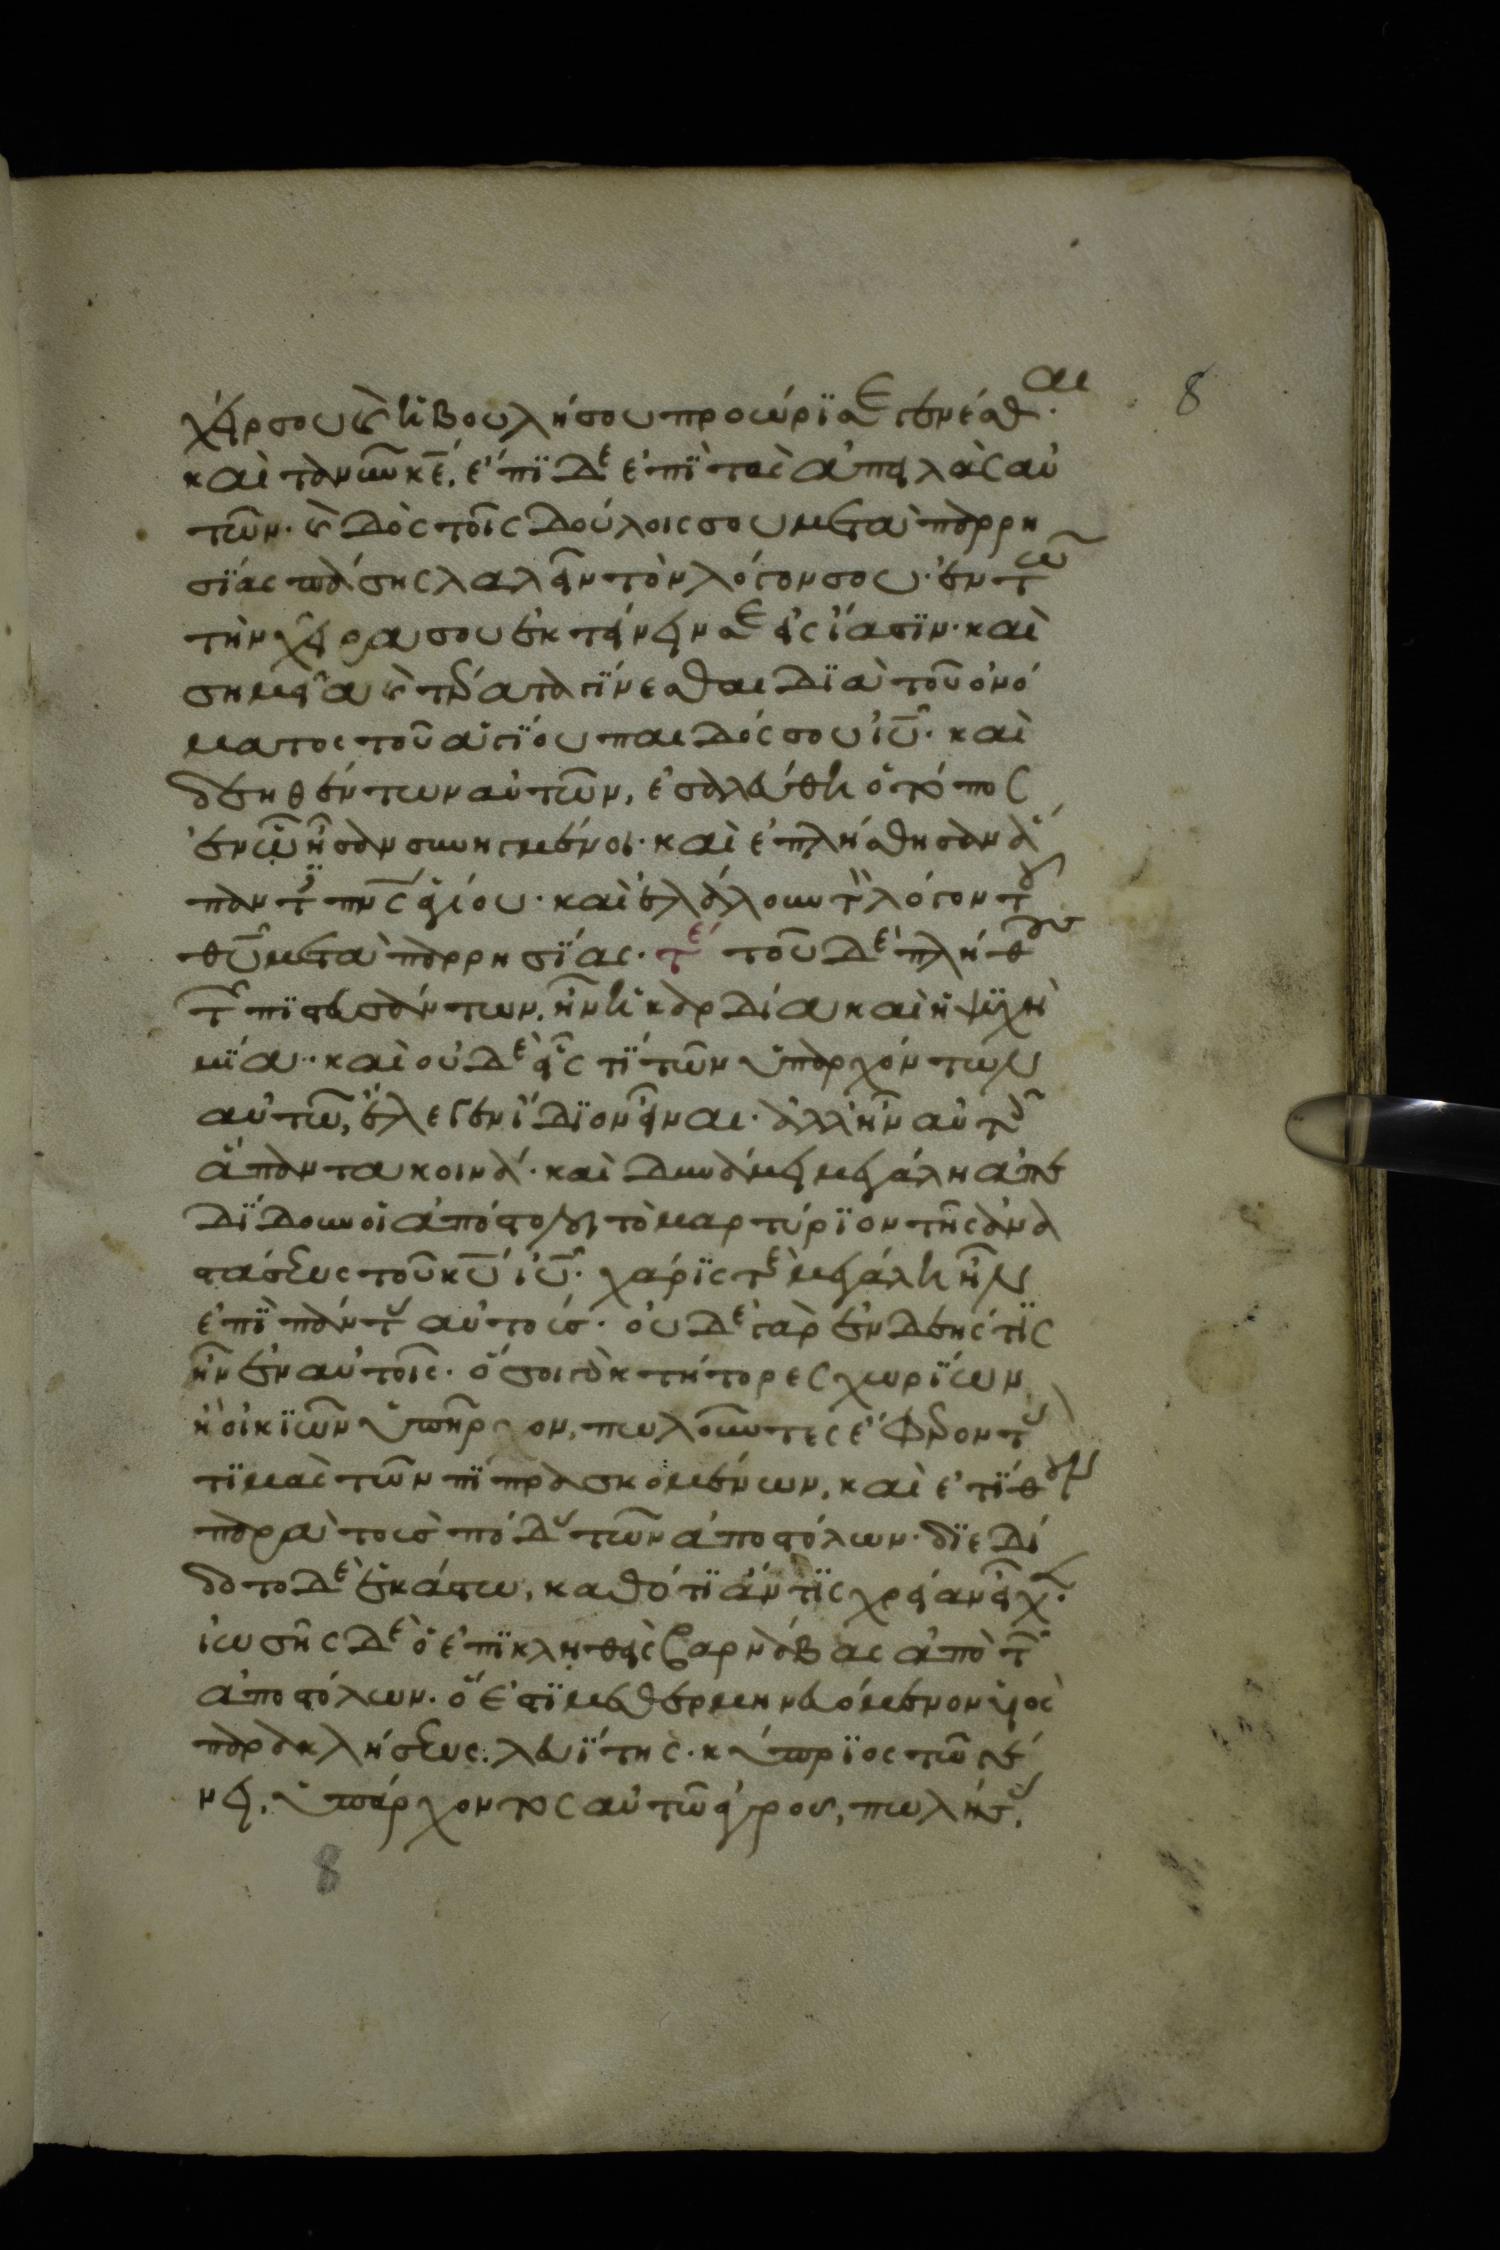 χείρ σου καὶ ἡ βουλή σου προώρισε γενέσθαι· 8
καὶ τανῦν κε̅, ἔπιδε ἐπὶ τὰς ἀπειλὰς αὐ
τῶν· καὶ δὸς τοῖς δούλοις σου μετὰ παρρη
σίας πάσης λαλεῖν τὸν λόγον σου· ἐν τῶ
τὴν χεῖρα σου ἐκτείνειν σε εἰς ἴασιν· καὶ
σημεῖα καὶ τέρατα γίνεσθαι διὰ τοῦ ὀνό
ματος τοῦ ἁγίου παιδός σου ἰυ̅· καὶ
δεηθέντων αὐτῶν, ἐσαλεύθη ὁ τόπος
ἐν ὧ ἦσαν συνηγμένοι· καὶ ἐπλήσθησαν ἅ
παντες πνς̅ ἁγίου· καὶ ἐλάλουν τὸν λόγον τοῦ
θυ̅ μετὰ παρρησίας· τέ τοῦ δὲ πλήθους
τῶν πιστευσάντων, ἦν ἡ καρδία καὶ ἡ ψυχὴ
μία· καὶ οὐδὲ εἷς τι τῶν ὑπαρχόντων
αὐτῶ, ἔλεγεν ἴδιον εἶναι· ἀλλ' ἦν αὐτοῖς
ἅπαντα κοινά· καὶ δυνάμει μεγάλη ἀπε
δίδουν οἱ ἀπόστολοι τὸ μαρτύριον τῆς ἀνα
στάσεως τοῦ κυ̅ ἰυ̅· χάρις τε μεγάλη ἦν
ἐπὶ πάντας αὐτούς· οὐδὲ γὰρ ἐνδεής τις
ἦν ἐν αὐτοῖς· ὅσοι γὰρ κτήτορες χωρίων
ἢ οἰκιῶν ὑπῆρχον, πωλοῦντες ἔφερον τὰς
τιμὰς τῶν πιπρασκομένων, καὶ ἐτίθουν
παρὰ τοὺς πόδας τῶν ἀποστόλων· διεδί
δοτο δὲ ἑκάστω, καθότι ἄν τις χρείαν εἶχεν·
ἰωσῆς δὲ ὁ ἐπικληθεὶς βαρνάβας ἀπὸ τῶν
ἀποστόλων· ὅ ἐστι μεθερμηνευόμενον υἱὸς
παρακλήσεως· λευΐτης· κύπριος τῶ γέ
νει, ὑπάρχοντος αὐτῶ ἀγροῦ, πωλήσας,
8